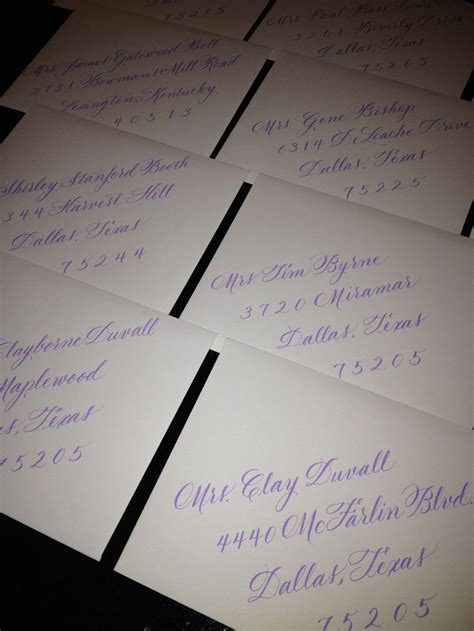 Mrs. Paul Bass
201 Beverly Drive
Dallas, Texas
75205
Mrs. James Gatewood Bell
2731 Bowman's Mill Road
Lexington, Kentucky
40513
Mrs. Gene Bishop
6314 DeLoache Drive
Dallas, Texas
75225
Shirley Stanford Booth
344 Harvest Hill
Dallas, Texas
75244
Mrs. Tim Byrne
3720 Miramar
Dallas, Texas
75205
Clayborne Duvall
Maplewood
Texas
75205
Mrs. Clay Duvall
4440 McFarlin Blvd.
Dallas, Texas
75205